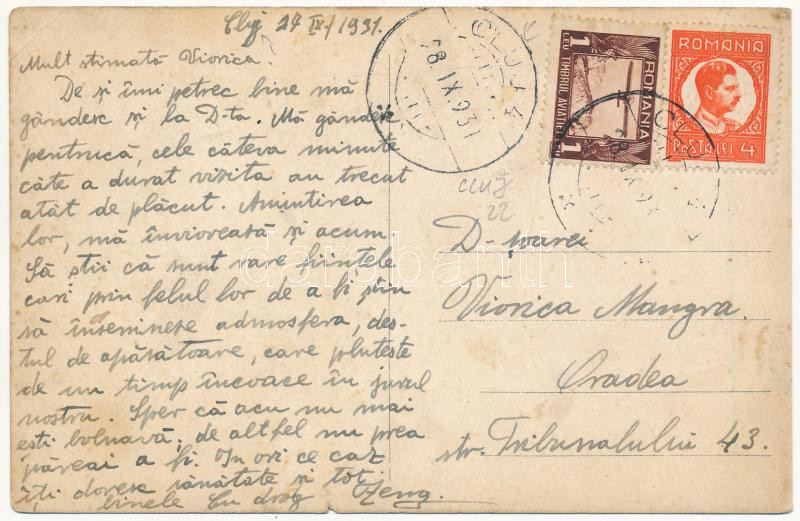 Cluj 27 IX/1931.
Mult stimată Viorica,
De și îmi petrec bine mă
gândesc și la D-ta. Mă gândesc
pentrucă, cele câteva minute
câte a durat vizita au trecut
atât de plăcut. Amintirea
lor, mă înviorează și acum.
Să știi că sunt rare ființele
cari prin felul lor de a fi știu
să însenineze admosfera, des-
tul de apăsătoare, care plutește
de un timp încoace în jurul
nostru. Sper că acu nu mai
ești bolnavă; de altfel nu prea
păreai a fi. În ori ce caz
îți doresc sănătate și tot
binele Cu drag
CLUJ 4
28 IX 931
ROMANIA
1 LEU TIMBRUL AVIATIEI 1
ROMANIA
POSTA LEI 4
CLUJ 4
cluj
22
D-șoarei
Viorica Mangra.
Oradea
str. Tribunalului 43.
darabanth